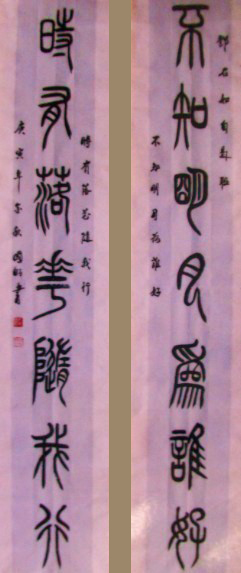 鄧石如自題聯
不知明月為誰好
不知明月為誰好
時有落花隨我行
時有落花隨我行
庚寅年